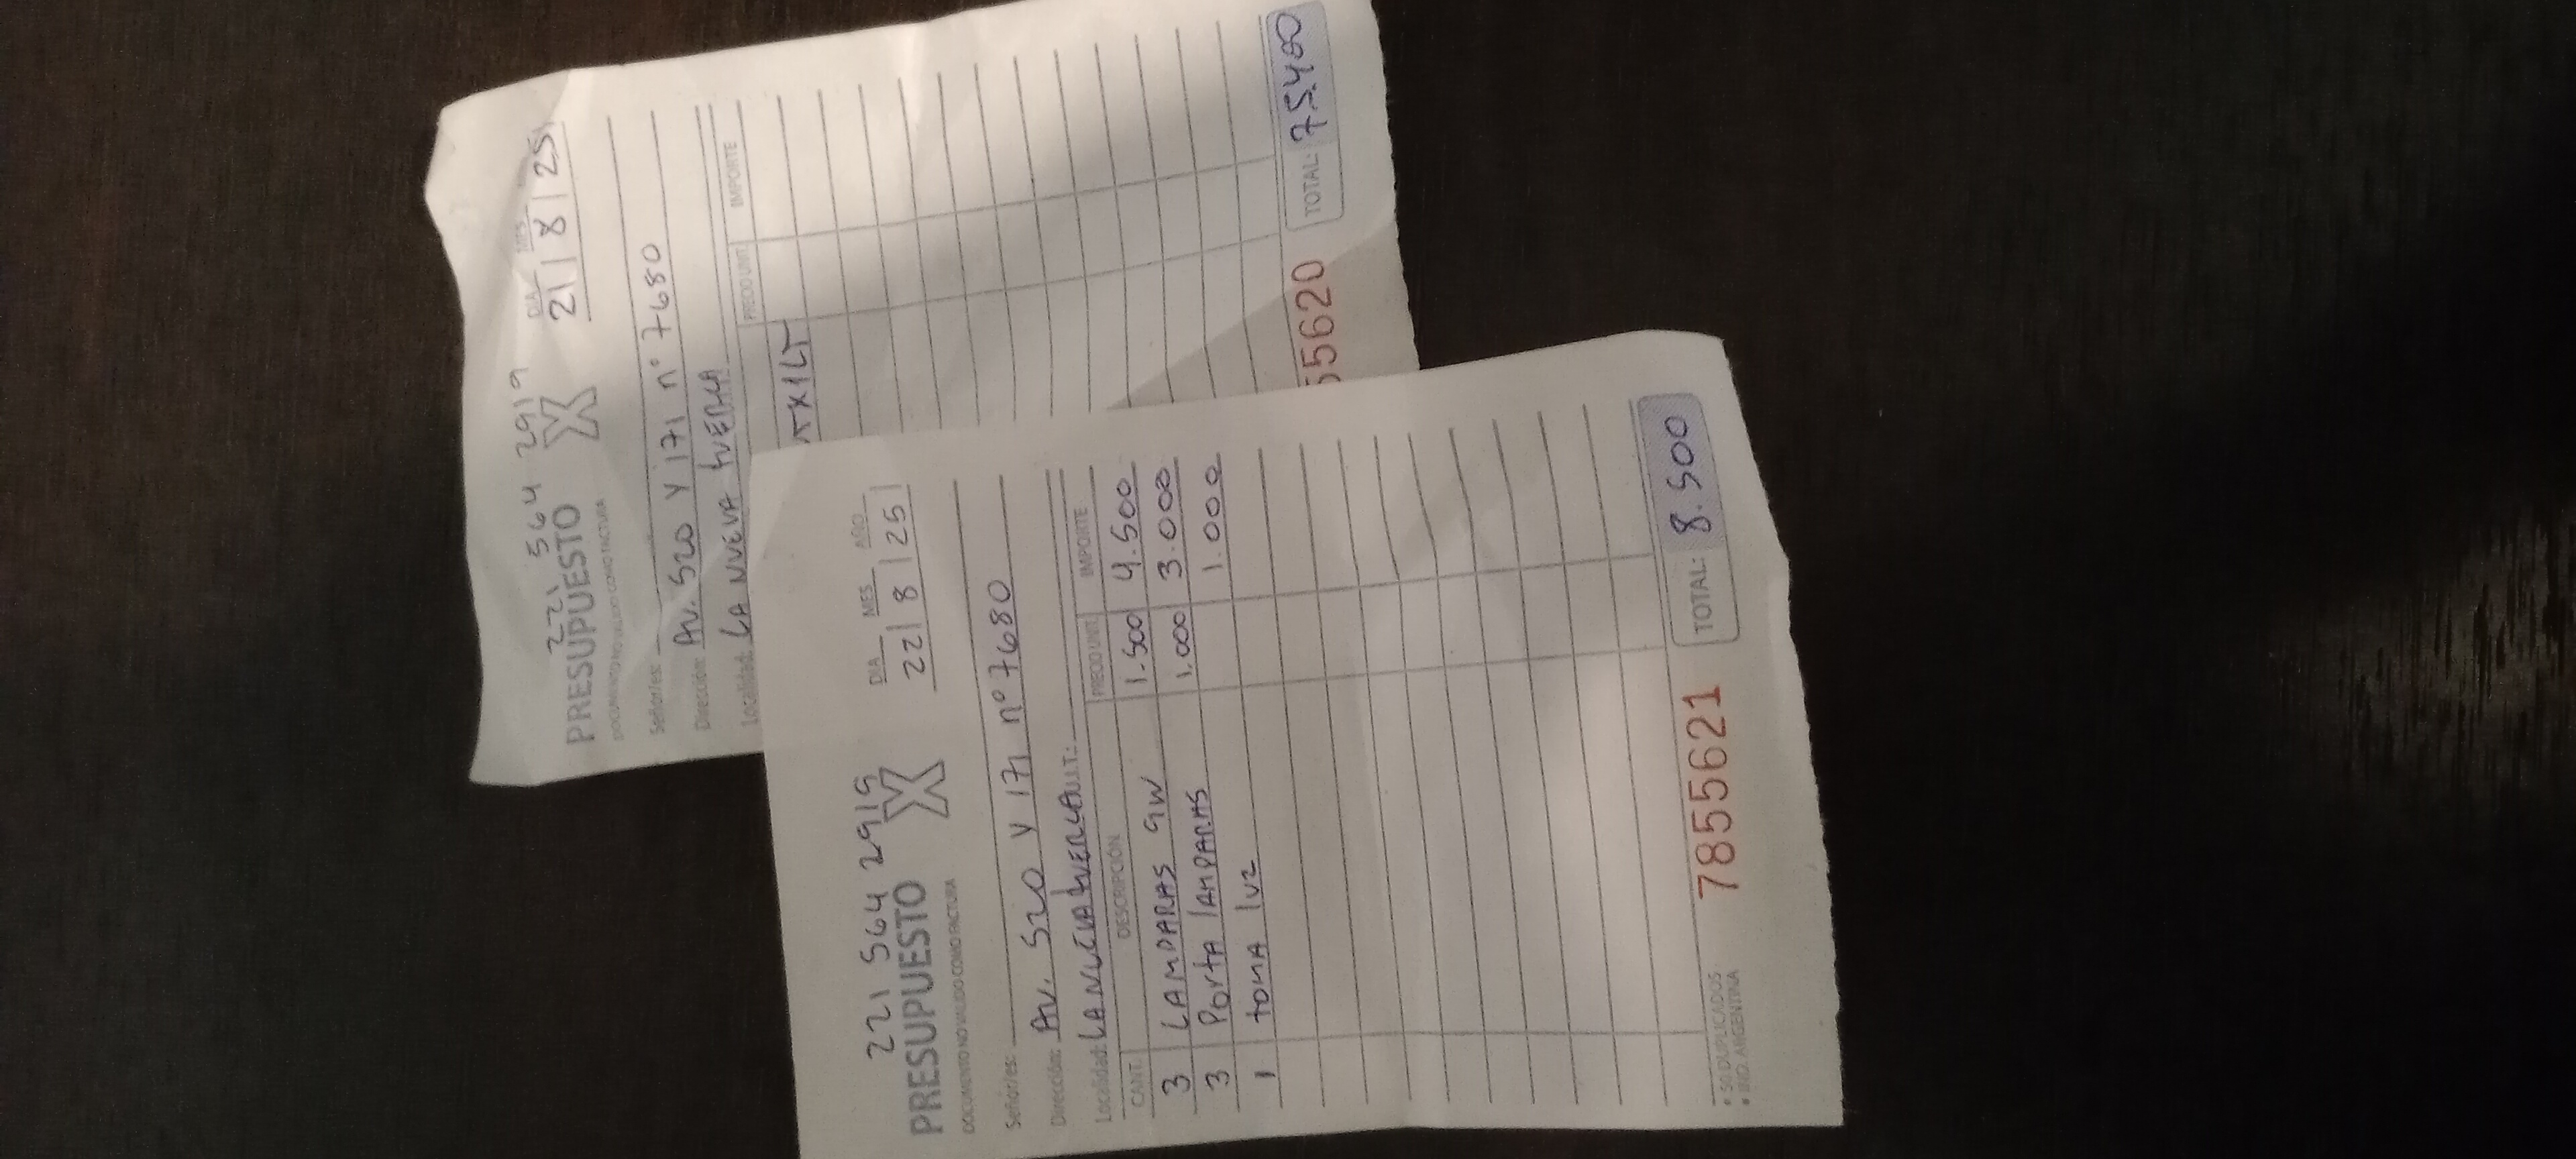 221 564 2919
PRESUPUESTO X
DOCUMENTO NO VALIDO COMO FACTURA
DIA MES
21 8 25
Señor/es:
Dirección: AV. 520 Y 171 nº 7680
Localidad: LA NUEVA tUERCA
PRECIO UNIT. IMPORTE
TX1LT
55620
TOTAL: 75.400
221 564 2919
PRESUPUESTO X
DOCUMENTO NO VALIDO COMO FACTURA
DIA MES AÑO
22 8 25
Señor/es:
Dirección: AV. 520 Y 171 nº 7680
Localidad: LA NUEVA tUERCA U.I.T.:
CANT. DESCRIPCIÓN PRECIO UNIT. IMPORTE
3 LAMPARAS 9W 1.500 4.500
3 Porta lAMPARAS 1.000 3.000
1 toMA luz 1.000
• 50 DUPLICADOS
• IND. ARGENTINA
7855621
TOTAL: 8.500